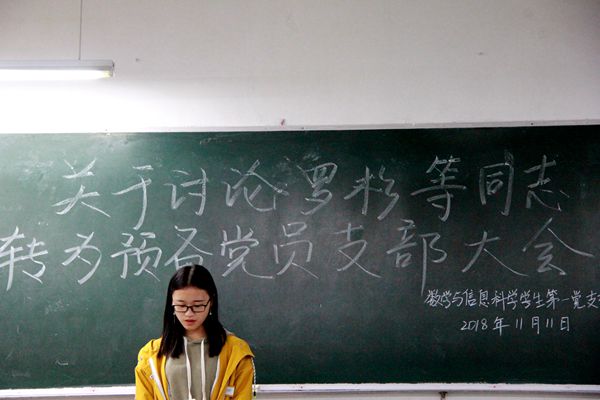 关于讨论罗杉等同志
转为预备党员支部大会
数学与信息科学学生第一党支
2018年11月11日